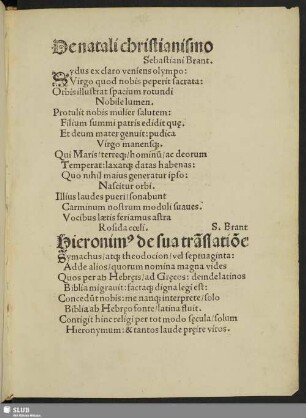 De natali christianismo
Sebastiani Brant.
Sydus ex claro veniens olympo:
Virgo quod nobis peperit sacrata:
Orbis illustrat spacium rotundi
Nobile lumen.
Protulit nobis mulier salutem:
Filium summi patris edidit quę.
Et deum mater genuit: pudica
Virgo manensq̃.
Qui Maris/terręq̃/hominũ/ac deorum
Temperat: laxatq̃ datas habenas:
Quo nihil maius generatur ipso:
Nascitur orbi.
Illius laudes pueri sonabunt
Carminum nostrum moduli suaues.
Vocibus lætis feriamus astra
Rosida cœli. S. Brant
Hieronimꝰ de sua trãslatiõe
Symachus/atq̃ theodocion/vel septuaginta:
Adde alios/quorum nomina magna vides
Quos per ab Hebręis/ad Gręcos: deinde latinos
Biblia migrauit: factaq̃ digna legi est:
Concedũt nobis: me nanq̃ interprete/solo
Biblia ab Hebręo fonte/latina fluit.
Contigit hinc religi per tot modo sęcula/solum
Hieronymum: & tantos laude pręire viros.
SLUB